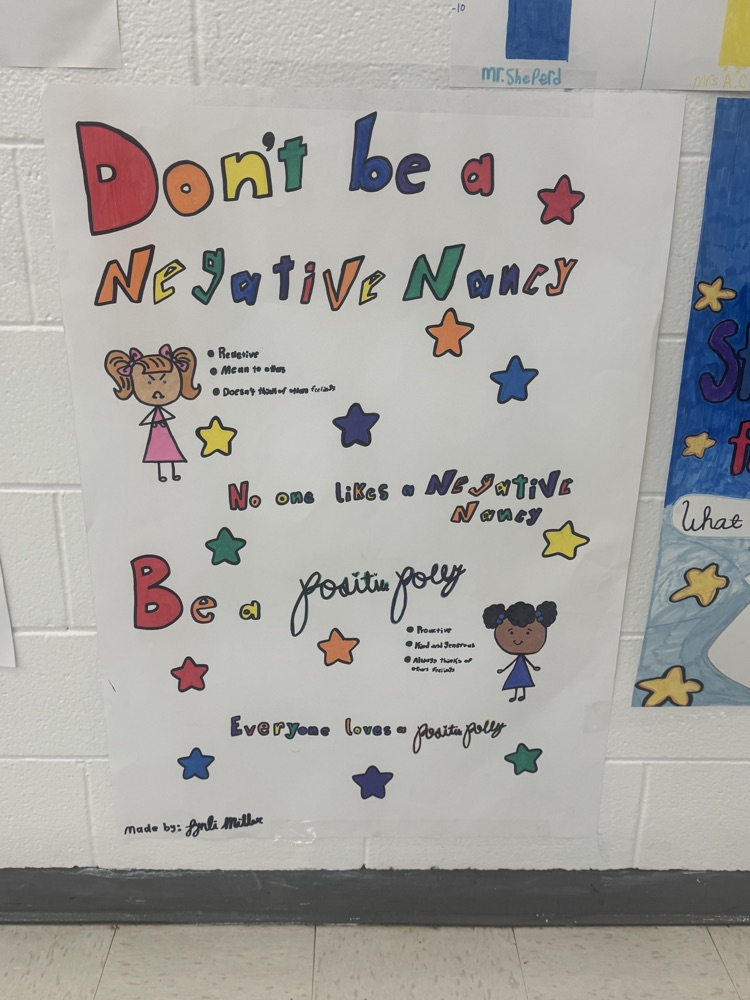 -10
Mr. Sheperd
Mrs. A. C
Don't be a
Negative Nancy
Reactive
Mean to others
Doesn't think of others feelings
No one likes a Negative
Nancy
Be a positive polly
Proactive
Kind and generous
Always thinks of
others feelings
Everyone loves a positive polly
made by: Lynli Miller
What